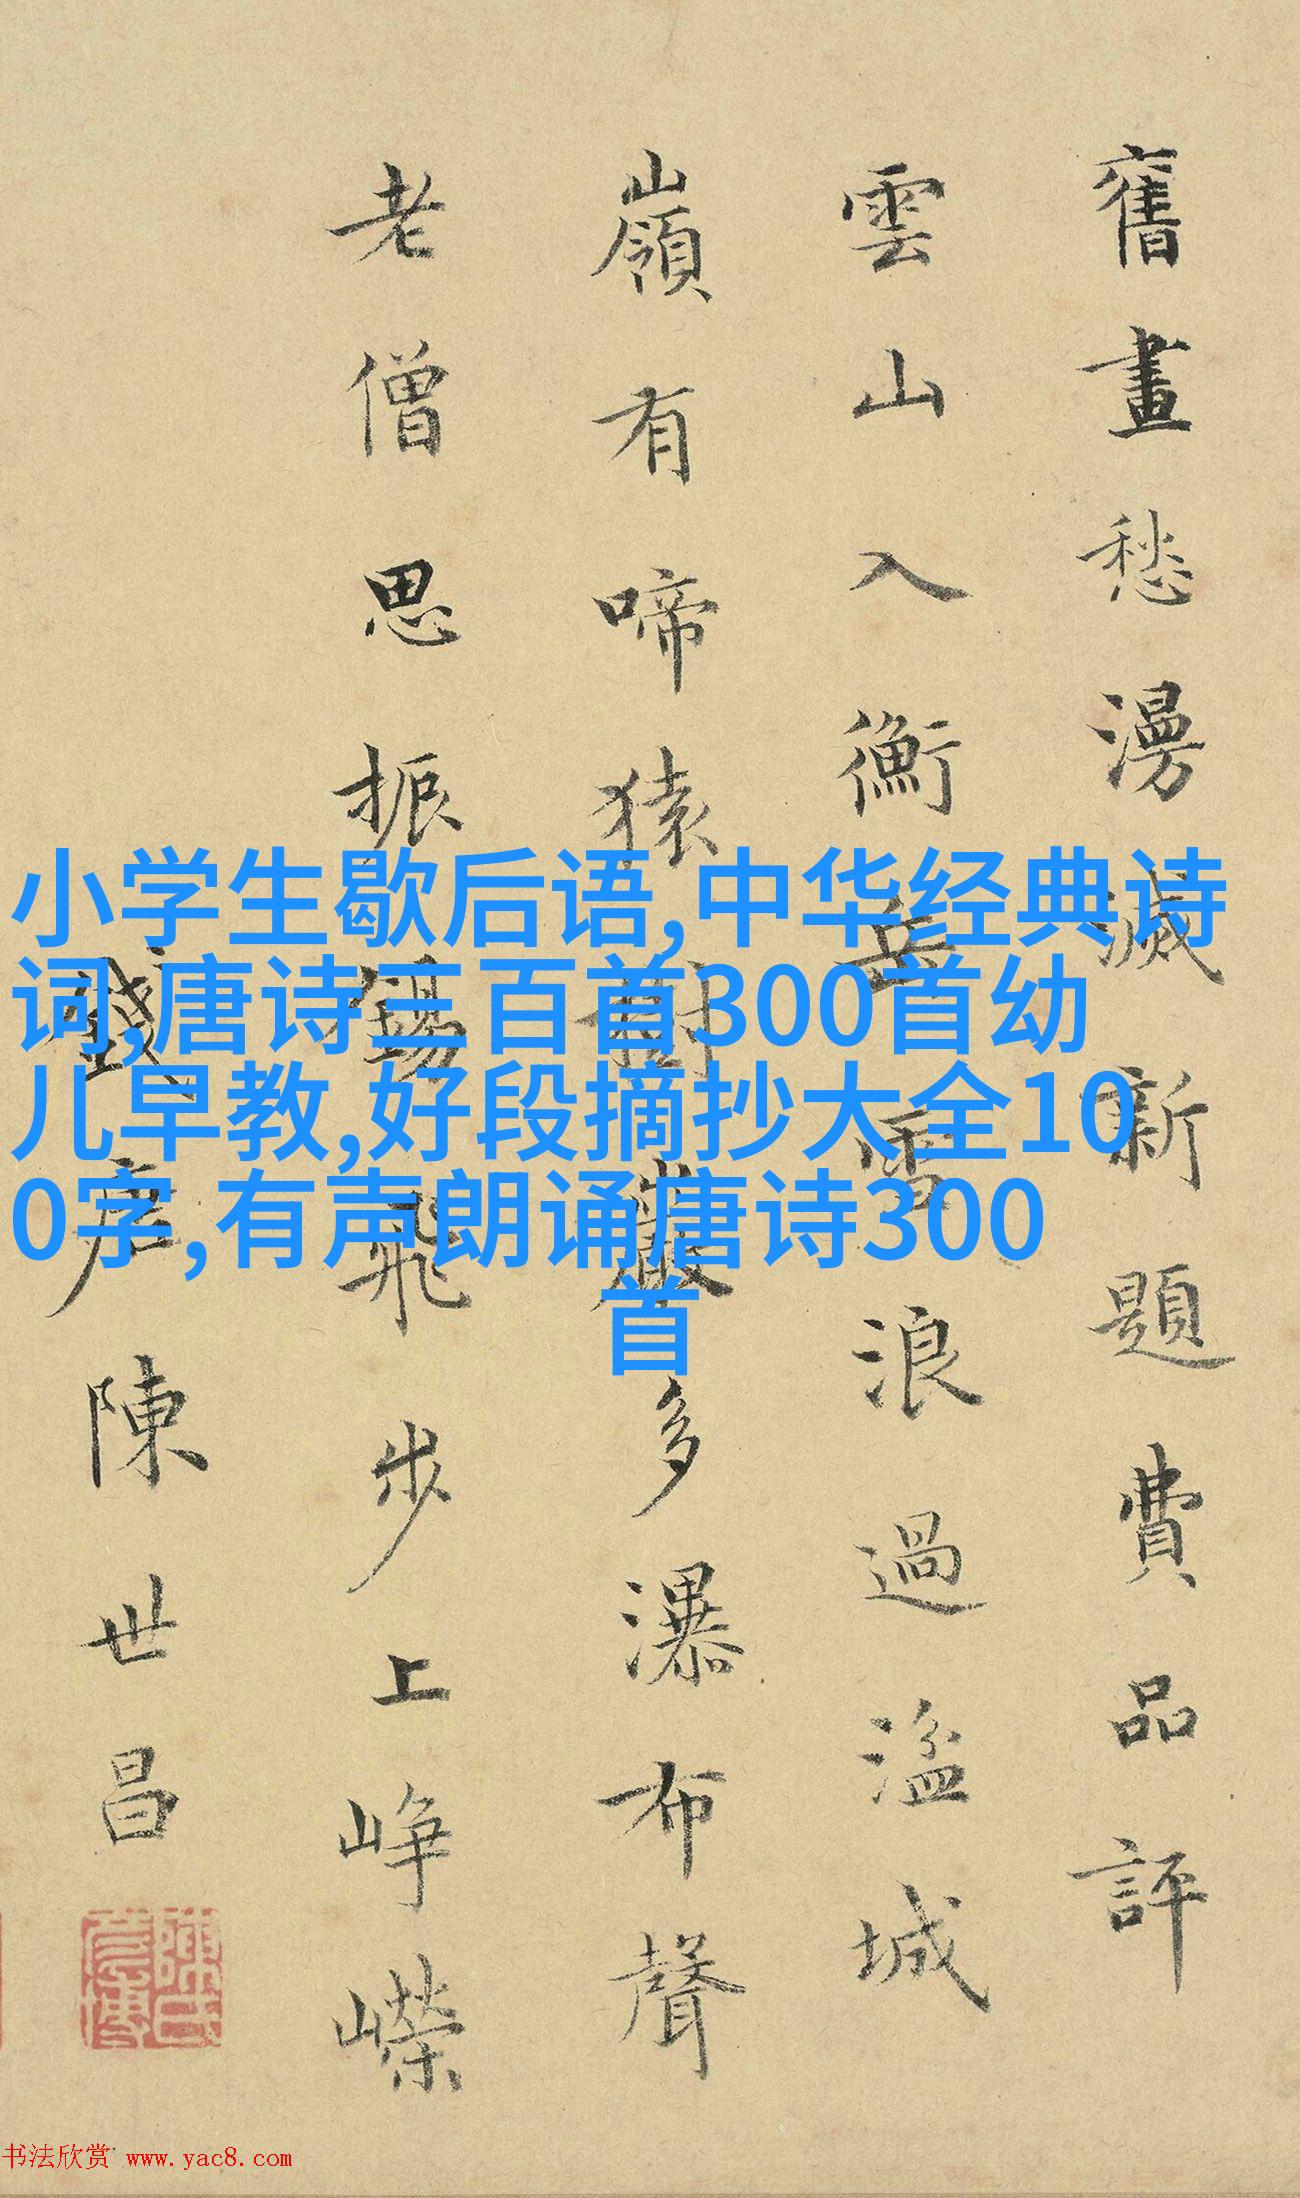 舊畫愁漫滅新題費品評
雲山入衡岳雪浪過湓城
嶺有啼猿樹巖多瀑布聲
老僧思振錫飛步上崢嶸
錢唐陳世昌
小学生歇后语,中华经典诗
词,唐诗三百首300首幼
儿早教,好段摘抄大全10
0字,有声朗诵唐诗300
首
书法欣赏 www.yac8.com